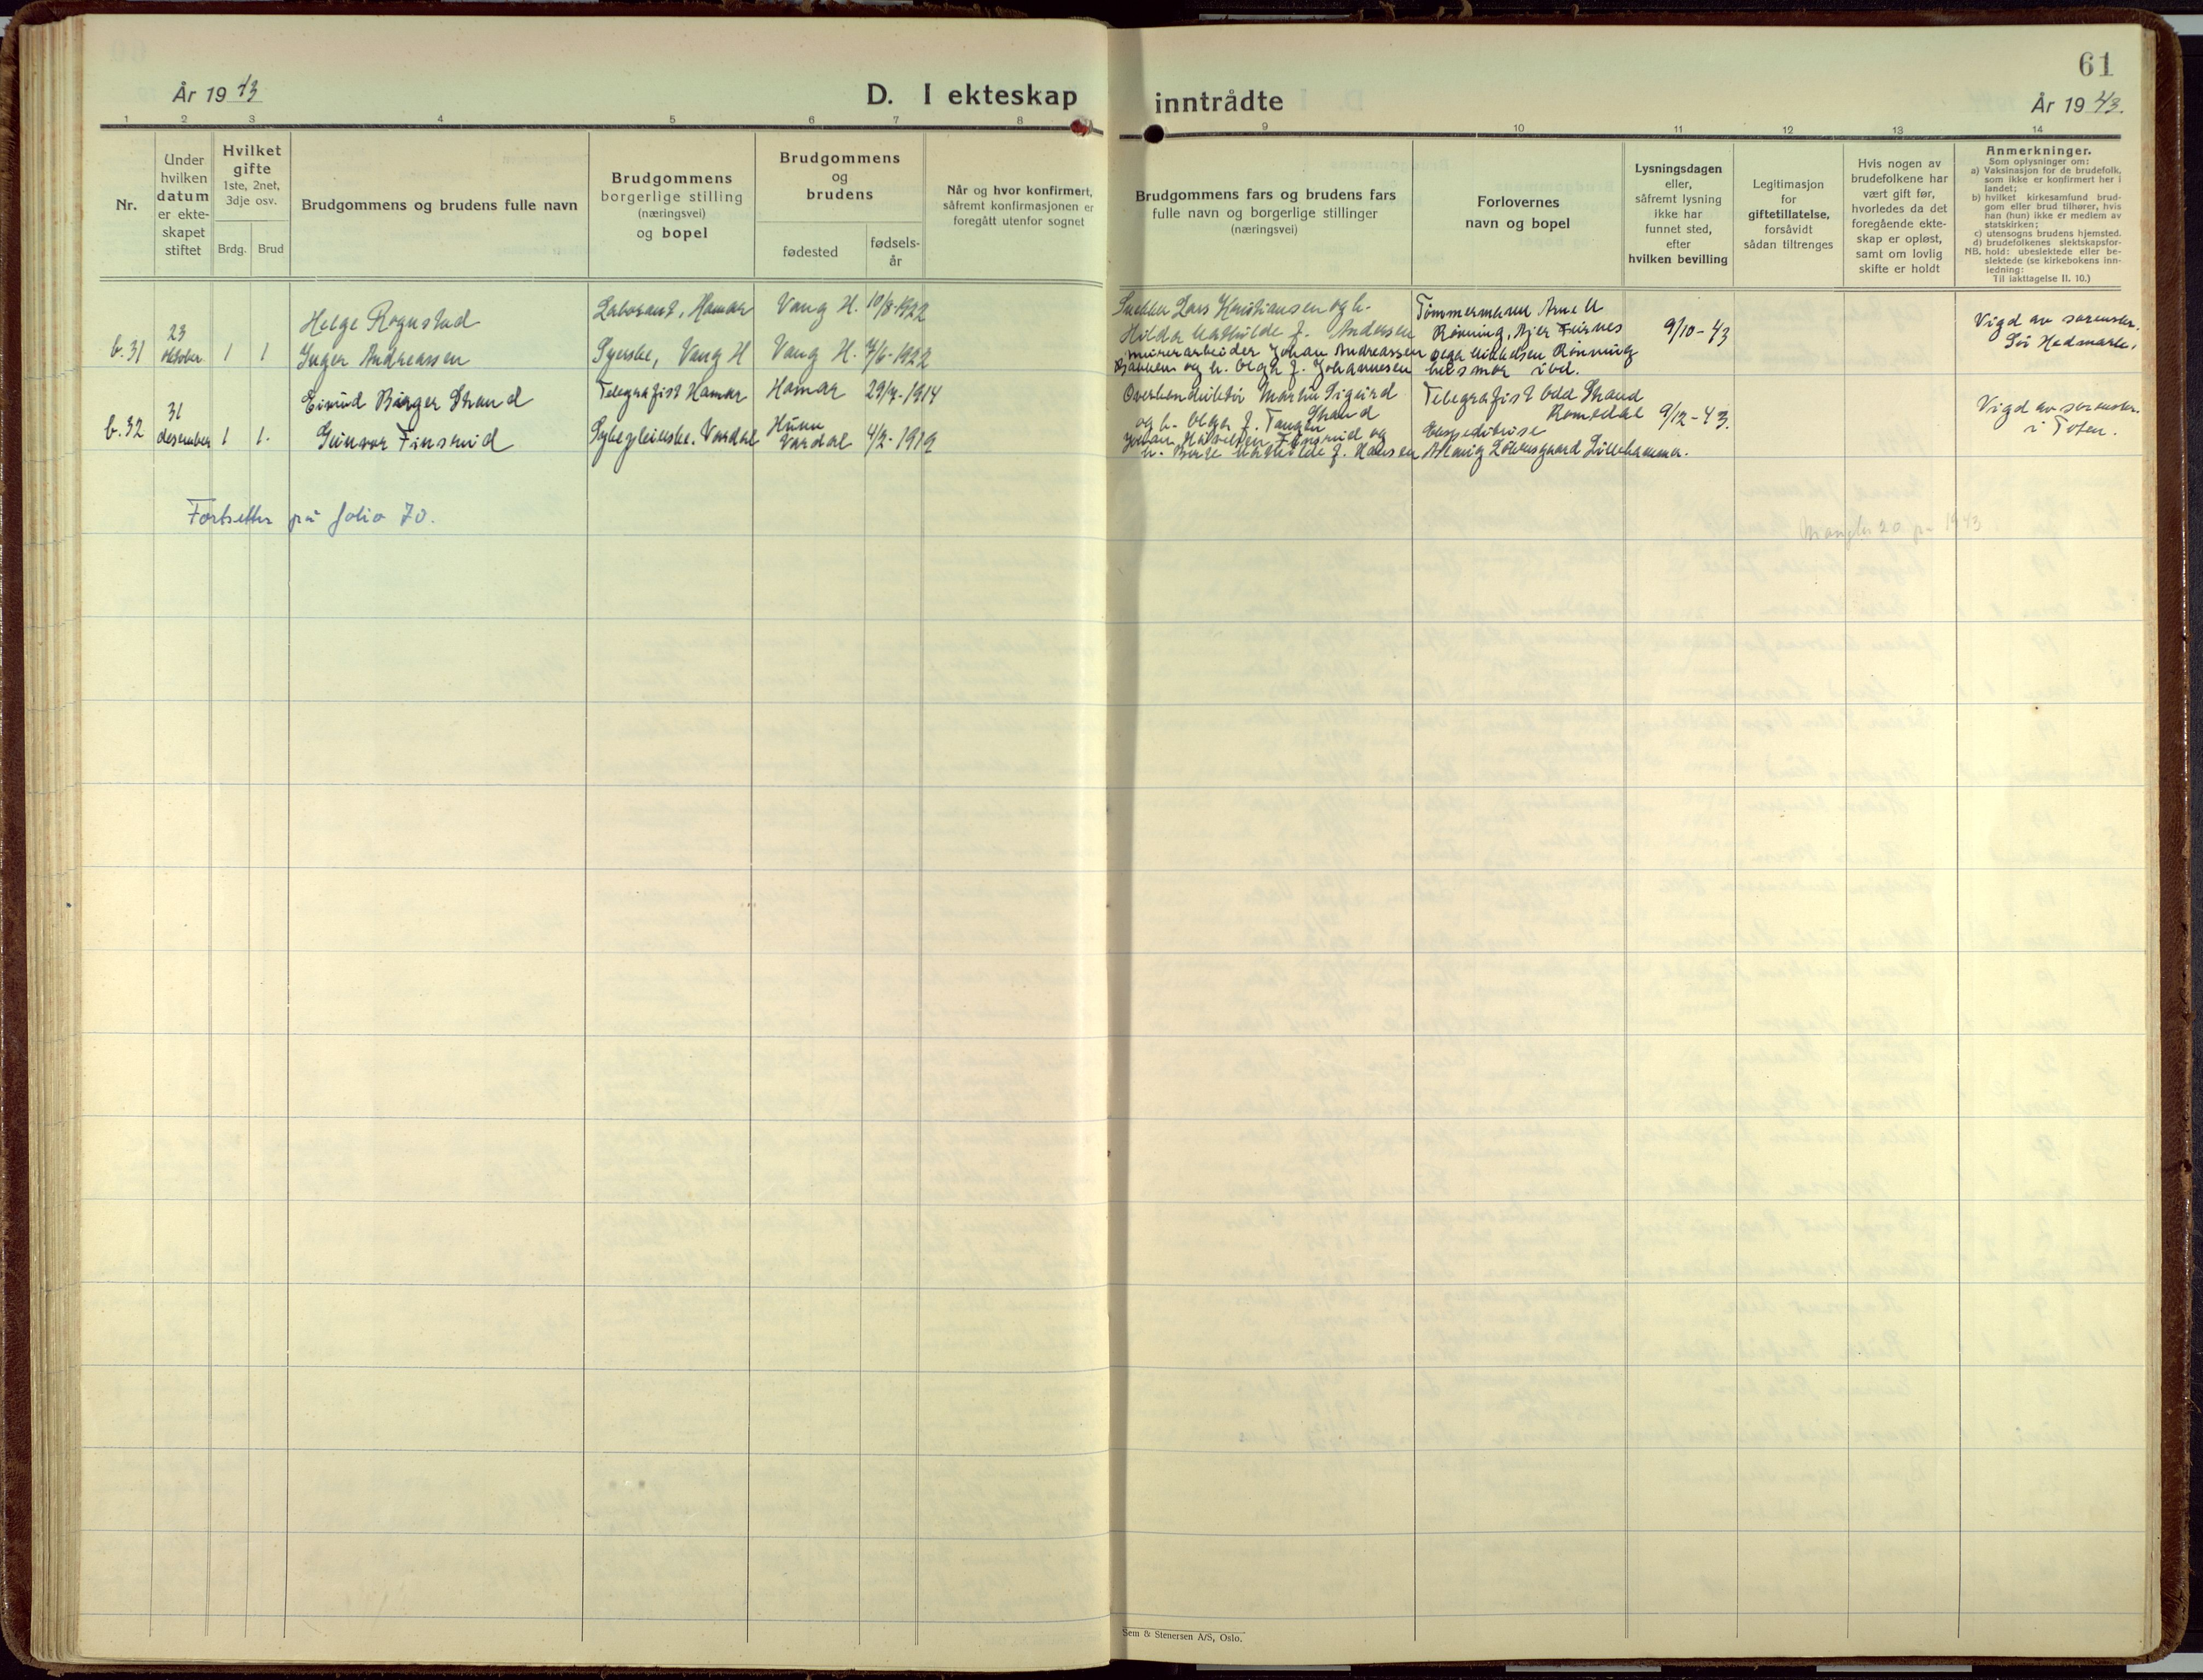 61
År 1943
D. I ekteskap inntrådte
År 1943.
1 2 3 4 5 6 7 8 9 10 11 12 13 14
Nr.
Under
hvilken
datum
er ekte-
skapet
stiftet
Hvilket
gifte
1ste, 2net,
3dje osv.
Brdg. Brud
Brudgommens og brudens fulle navn
Brudgommens
borgerlige stilling
(næringsvei)
og bopel
Brudgommens
og
brudens
fødested
fødsels-
år
Når og hvor konfirmert,
såfremt konfirmasjonen er
foregått utenfor sognet
Brudgommens fars og brudens fars
fulle navn og borgerlige stillinger
(næringsvei)
Forlovernes
navn og bopel
Lysningsdagen
eller,
såfremt lysning
ikke har
funnet sted,
efter
hvilken bevilling
Legitimasjon
for
giftetillatelse,
forsåvidt
sådan tiltrenges
Hvis nogen av
brudefolkene har
vært gift før,
hvorledes da det
foregående ekte-
skap er opløst,
samt om lovlig
skifte er holdt
Anmerkninger.
Som oplysninger om:
a) Vaksinasjon for de brudefolk,
som ikke er konfirmert her i
landet;
b) hvilket kirkesamfund brud-
gom eller brud tilhører, hvis
han (hun) ikke er medlem av
statskirken;
c) utensogns brudens hjemsted.
d) brudefolkenes slektskapsfor-
NB. hold: ubeslektede eller be-
slektede (se kirkebokens inn-
ledning:
Til iakttagelse II. 10.)
b.31
23
oktober
1 1
Helge Rognstad
Inger Andreassen
Laborant, Hamar
Syerske, Vang H
Vang H. 10/8-1922
Vang H. 14/6-1922
Snekker Lars Kristiansen og h.
Hilda Mathilde f. Andersen
murerarbeider Johan Andreassen
og h. Olga f. Johannesen
Tømmermann Arne M
Rönning, Ajer Furnes
Olga Mikkelsen Rönning
husmor ibd.
9/10-43
Vigd av sorenskr.
Sör Hedmark.
b.32
31
desember
1 1.
Eivind Birger Strand
Gunvor Finsrud
Telegrafist Hamar
Sykepleierske. Vardal
Hamar 29/7-1914
Hunn
Vardal 4/2-1919
Overkonduktör Martin Sigurd
Strand
og h. Olga f. Tangen
Johan Halvorsen Finsrud og
h. Berte Mathilde f. Hansen
Telegrafist Odd Strand
Romedal
Ekspeditrise
Aslaug Lökensgaard Lillehammer.
9/12-43.
Vigd av sorenskr.
i Toten.
Fortsetter på folio 70.
Mangler 20 på 1943
Sem & Stenersen A/S, Oslo.